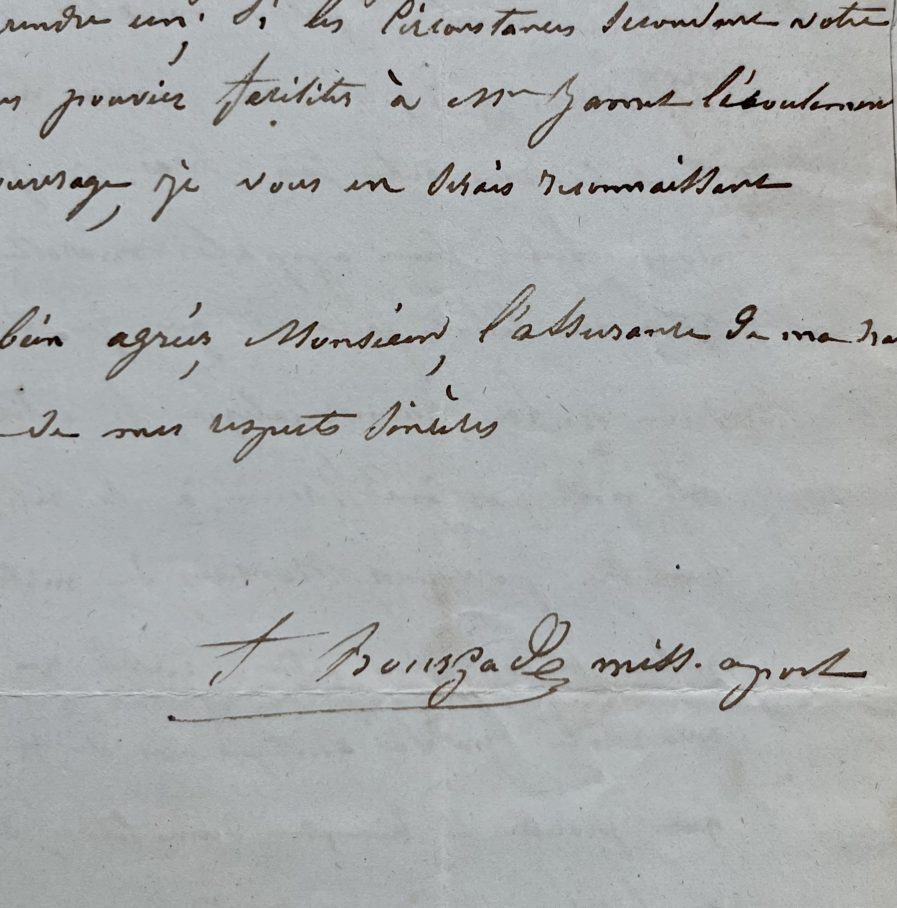 un; Si les circonstances secondent votre
pouviez faciliter à Mr l'écoulement
je vous en serais reconnaissant
bien agréer, Monsieur, l'assurance de ma
de mes respects sincères
miss. apost